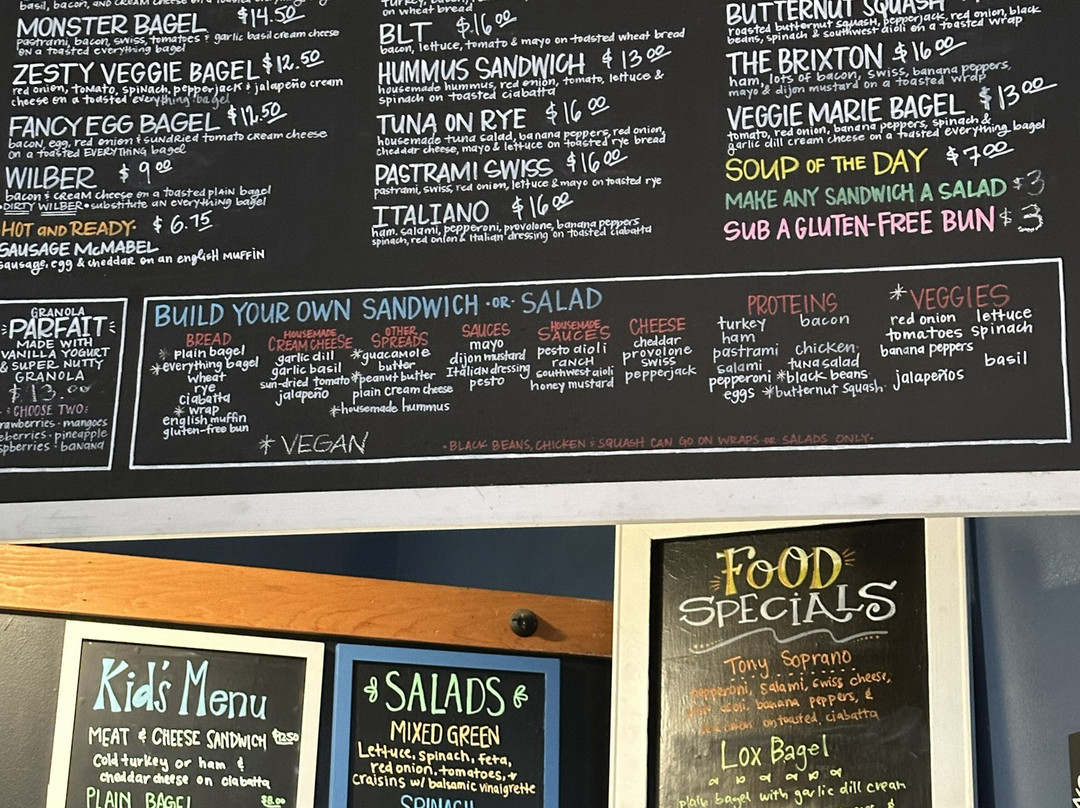 basil, bacon, and cream cheese
MONSTER BAGEL $14.50
pastrami, bacon, swiss, tomatoes & garlic basil cream cheese
on a toasted everything bagel
ZESTY VEGGIE BAGEL $12.50
red onion, tomato, spinach, pepperjack & jalapeño cream
cheese on a toasted everything bagel
FANCY EGG BAGEL $12.50
bacon, egg, red onion & sundried tomato cream cheese
on a toasted EVERYTHING bagel
WILBER $9.00
bacon & cream cheese on a toasted plain bagel
•DIRTY WILBER• substitute an everything bagel
HOT and READY• $6.75
SAUSAGE McMABEL
sausage, egg & cheddar on an english MUFFIN
on wheat bread
BLT $16.00
bacon, lettuce, tomato & mayo on toasted wheat bread
HUMMUS SANDWICH $13.00
housemade hummus, red onion, tomato, lettuce &
spinach on toasted ciabatta
TUNA ON RYE $16.00
housemade tuna salad, banana peppers, red onion,
cheddar cheese, mayo & lettuce on toasted rye bread
PASTRAMI SWISS $16.00
pastrami, swiss, red onion, lettuce & mayo on toasted rye
ITALIANO $16.00
ham, salami, pepperoni, provolone, banana peppers
spinach, red onion & Italian dressing on toasted ciabatta
BUTTERNUT SQUASH
roasted butternut squash, pepperjack, red onion, black
beans, spinach & southwest aioli on a toasted wrap
THE BRIXTON $16.00
ham, lots of bacon, swiss, banana peppers,
mayo & dijon mustard on a toasted wrap
VEGGIE MARIE BAGEL $13.00
tomato, red onion, banana peppers, spinach &
garlic dill cream cheese on a toasted everything bagel
SOUP OF THE DAY $7.00
MAKE ANY SANDWICH A SALAD $3
SUB A GLUTEN-FREE BUN $3
GRANOLA
PARFAIT
MADE WITH
VANILLA YOGURT
& SUPER NUTTY
GRANOLA
$13.00
CHOOSE TWO:
mangoes
pineapple
banana
BUILD YOUR OWN SANDWICH •OR• SALAD
BREAD
* plain bagel
* everything bagel
wheat
rye
ciabatta
* wrap
english muffin
gluten-free bun
HOUSEMADE
CREAM CHEESE
garlic dill
garlic basil
sun-dried tomato
jalapeño
OTHER
SPREADS
*guacamole
butter
*peanut butter
plain cream cheese
*housemade hummus
SAUCES
mayo
dijon mustard
Italian dressing
pesto
HOUSEMADE
SAUCES
pesto aioli
ranch
southwest aioli
honey mustard
CHEESE
cheddar
provolone
swiss
pepperjack
PROTEINS
turkey bacon
ham
pastrami chicken
salami tuna salad
pepperoni *black beans
eggs *butternut squash
*VEGGIES
red onion lettuce
tomatoes spinach
banana peppers
basil
jalapeños
*VEGAN
•BLACK BEANS, CHICKEN & SQUASH CAN GO ON WRAPS OR SALADS ONLY•
Kid's Menu
MEAT & CHEESE SANDWICH $12.50
Cold turkey or ham &
cheddar cheese on ciabatta
PLAIN BAGEL $8.00
SALADS
MIXED GREEN
Lettuce, spinach, feta,
red onion, tomatoes, +
craisins w/ balsamic vinaigrette
SPINACH
FOOD
SPECIALS
Tony Soprano
pepperoni, salami, swiss cheese,
aioli, banana peppers, &
on toasted ciabatta
Lox Bagel
plain bagel with garlic dill cream